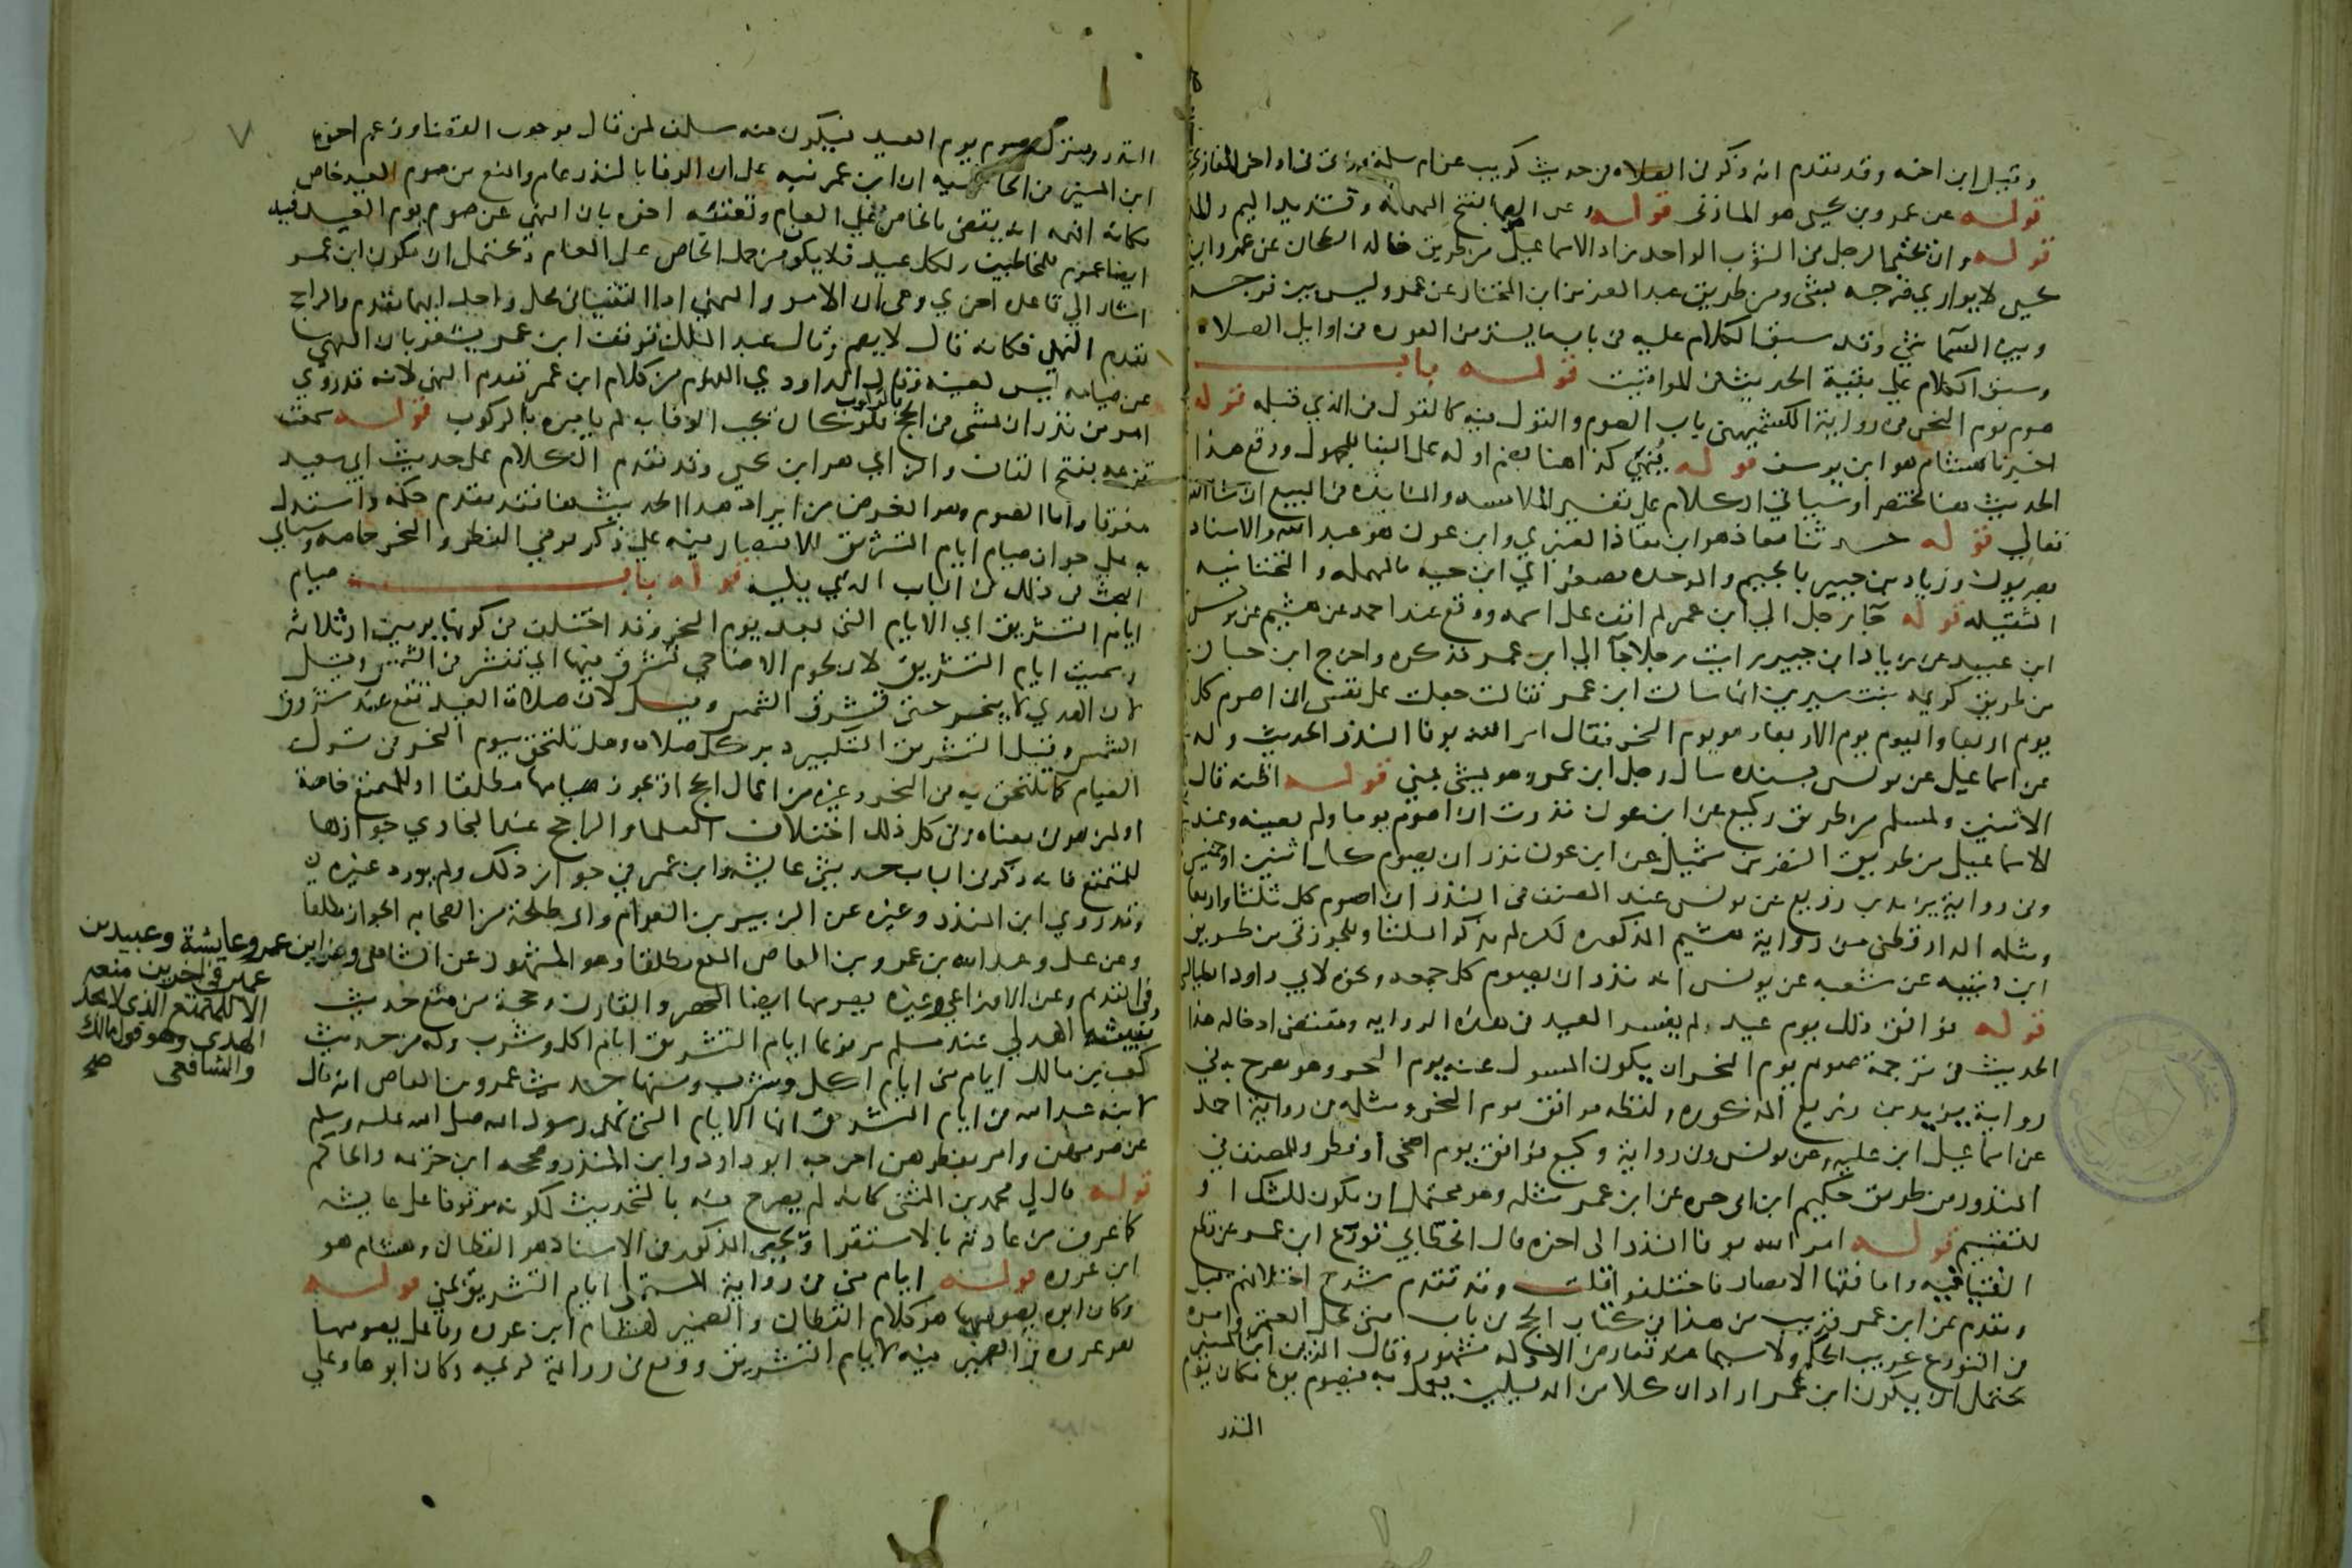 وقيل ابن اخته وقد تقدم انه ذكر في الصلاه من حديث كريب عن ام سلمه وياتي في اواخر المغازي
قوله عن عمرو بن يحيى هو المازني قوله وعن الصما بفتح المهمله وتشديد الميم والمد
قوله وان يحتبي الرجل في الثوب الواحد زاد الاسماعيلي من طريق خالد الطحان عن عمرو ابن
يحيى لا يواري فرجه بشي ومن طريق عبد العزيز ابن المختار عن عمرو ليس بين فرجه
وبين السما شي وقد سبق الكلام عليه في باب ما يستر من العوره في اوايل الصلاه
وسبق الكلام علي بقية الحديث في المواقيت قوله باب
صوم يوم النحر في رواية الكشميهني باب الصوم والقول فيه كالقول في الذي قبله قوله
اخبرنا هشام هو ابن يوسف قوله يُنهى كذا هنا بضم اوله على البنا للمجهول ووقع هذا
الحديث هنا مختصرا وسياتي الكلام علي تفسير الملامسه والمنابذه في البيع ان شا الله
تعالي قوله حدثنا معاذ هو ابن معاذ العنبري وابن عون هو عبد الله والاسناد
بصريون وزياد بن جبير بالجيم والموحده مصغر اي ابن حيه بالمهمله والتحتانيه
الثقيله قوله جآ رجل الي ابن عمر لم اقف على اسمه ووقع عند احمد عن هشيم عن يونس
ابن عبيد عن زياد ابن جبير رايت رجلا جآ الي ابن عمر فذكره واخرج ابن حبان
من طريق كريمه بنت سيرين انها سالت ابن عمر فقالت جعلت على نفسي ان اصوم كل
يوم اربعا واليوم يوم الاربعا وهو يوم النحر فقال امر الله بوفا النذر الحديث وله
عن اسماعيل عن يونس بسنده سال رجل ابن عمر وهو يمشي بمنى قوله اظنه قال
الاثنين ولمسلم من طريق وكيع عن ابن عون نذرت ان اصوم يوما ولم يعينه وعند
الاسماعيلي من طريق النضر بن شميل عن ابن عون نذر ان يصوم كل اثنين او خميس
وفي رواية يزيد بن زريع عن يونس عند المصنف في النذر ان اصوم كل ثلثا واربعا
ومثله الدارقطني من رواية هشيم المذكوره لكن لم يذكر الثلثا وللجوزقي من طريق
ابن قتيبه عن شعبه عن يونس انه نذر ان يصوم كل جمعه ونحوه لابي داود الطيالسي
قوله فوافق ذلك يوم عيد لم يفسر العيد في هذه الروايه ومقتضى ادخاله هذا
الحديث في ترجمة صوم يوم النحر ان يكون المسول عنه يوم النحر وهو مصرح به في
رواية يزيد بن زريع المذكوره ولفظه فوافق يوم النحر ومثله في رواية احمد
عن اسماعيل ابن عليه عن يونس وفي رواية وكيع فوافق يوم اضحى او فطر وللمصنف في
النذور من طريق حكيم ابن ابي حره عن ابن عمر مثله وهو محتمل ان يكون للشك او
للتقسيم قوله امر الله بوفا النذر الى اخره قال الخطابي تورع ابن عمر عن قطع
الفتيا فيه واما فقها الامصار فاختلفوا قلت وقد تقدم شرح اختلافهم قبل
وتقدم عن ابن عمر قريب من هذا في كتاب الحج في باب متى يحل المعتمر وامره
في التورع عن بت الحكم ولا سيما عند تعارض الادله مشهور وقال الزين ابن المنير
يحتمل ان يكون ابن عمر اراد ان كلا من الدليلين يعمل به فيصوم يوما مكان يوم
النذر
النذر ويترك صوم يوم العيد فيكون فيه سلف لمن قال بوجوب القضا وزعم اخوه
ابن المنير في الحاشيه ان ابن عمر نبه على ان الوفا بالنذر عام والمنع من صوم العيد خاص
فكانه افهمه انه يقضى بالخاص على العام وتعقبه اخوه بان النهي عن صوم يوم العيد فيه
ايضا عموم للمخاطبين ولكل عيد فلا يكون من حمل الخاص على العام ويحتمل ان يكون ابن عمر
اشار الي قاعده اخري وهي ان الامر والنهي اذا التقيا في محل واحد ايهما يقدم والراجح
يقدم النهي فكانه قال لا يصم وقال عبد الملك توقف ابن عمر يشعر بان النهي
عن صيامه ليس لعينه وقال الداودي المفهوم من كلام ابن عمر تقدم النهي لانه قد روي
امر من نذر ان يمشي في الحج بالركوب فلو كان يجب الوفا به لم يامره بالركوب قوله سمعت
قزعه بفتح القاف والزاي هو ابن يحيى وقد تقدم الكلام على حديث ابي سعيد
مفرقا واما الصوم وهو الغرض من ايراد هذا الحديث هنا فقد تقدم حكمه واستدل
به علي جواز صيام ايام التشريق للاقتصار فيه علي ذكر يومي الفطر والنحر خاصه وسياتي
البحث في ذلك في الباب الذي يليه قوله باب صيام
ايام التشريق اي الايام التي بعد يوم النحر وقد اختلف في كونها يومين او ثلاثه
وسميت ايام التشريق لان لحوم الاضاحي تشرق فيها اي تنشر في الشمس وقيل
لان الهدي لا ينحر حتى تشرق الشمس وقيل لان صلاة العيد تقع عند شروق
الشمس وقيل التشريق التكبير دبر كل صلاه وهل تلتحق بيوم النحر في ترك
الصيام كما تلتحق به في النحر وغيره من اعمال الحج او يجوز صيامها مطلقا او للمتمتع خاصة
او له ولمن هو في معناه وفي كل ذلك اختلاف العلما والراجح عند البخاري جوازها
للمتمتع فانه ذكر في الباب حديثي عايشه وابن عمر في جواز ذلك ولم يورد غيره
وقد روي ابن المنذر وغيره عن الزبير بن العوام وابي طلحة من الصحابه الجواز مطلقا
وعن علي وعبد الله بن عمرو بن العاص المنع مطلقا وهو المشهور عن الشافعي وعن ابن عمر وعايشة وعبيد بن
عمير في اخرين منعه
الا للمتمتع الذي لا يجد
الهدي وهو قول مالك
والشافعي صح
في القديم وعن الاوزاعي وغيره يصومها ايضا المحصر والقارن وحجة من منع حديث
نبيشه الهذلي عند مسلم مرفوعا ايام التشريق ايام اكل وشرب وله من حديث
كعب بن مالك ايام منى ايام اكل وشرب ومنها حديث عمرو بن العاص انه قال
لابنه عبد الله في ايام التشريق انها الايام التي نهى رسول الله صلى الله عليه وسلم
عن صومهن وامر بفطرهن اخرجه ابو داود وابن المنذر وصححه ابن خزيمه والحاكم
قوله قال لي محمد بن المثنى كانه لم يصرح فيه بالتحديث لكونه موقوفا على عايشه
كما عرف من عادته بالاستقرا ويحيى المذكور في الاسناد هو القطان وهشام هو
ابن عروه قوله ايام منى في رواية المستملي ايام التشريق بمنى قوله
وكان ابوه يصومها هو كلام القطان والضمير لهشام ابن عروه وفاعل يصومها
هو عروه والضمير فيه لايام التشريق ووقع في رواية كريمه وكان ابوها وعلي